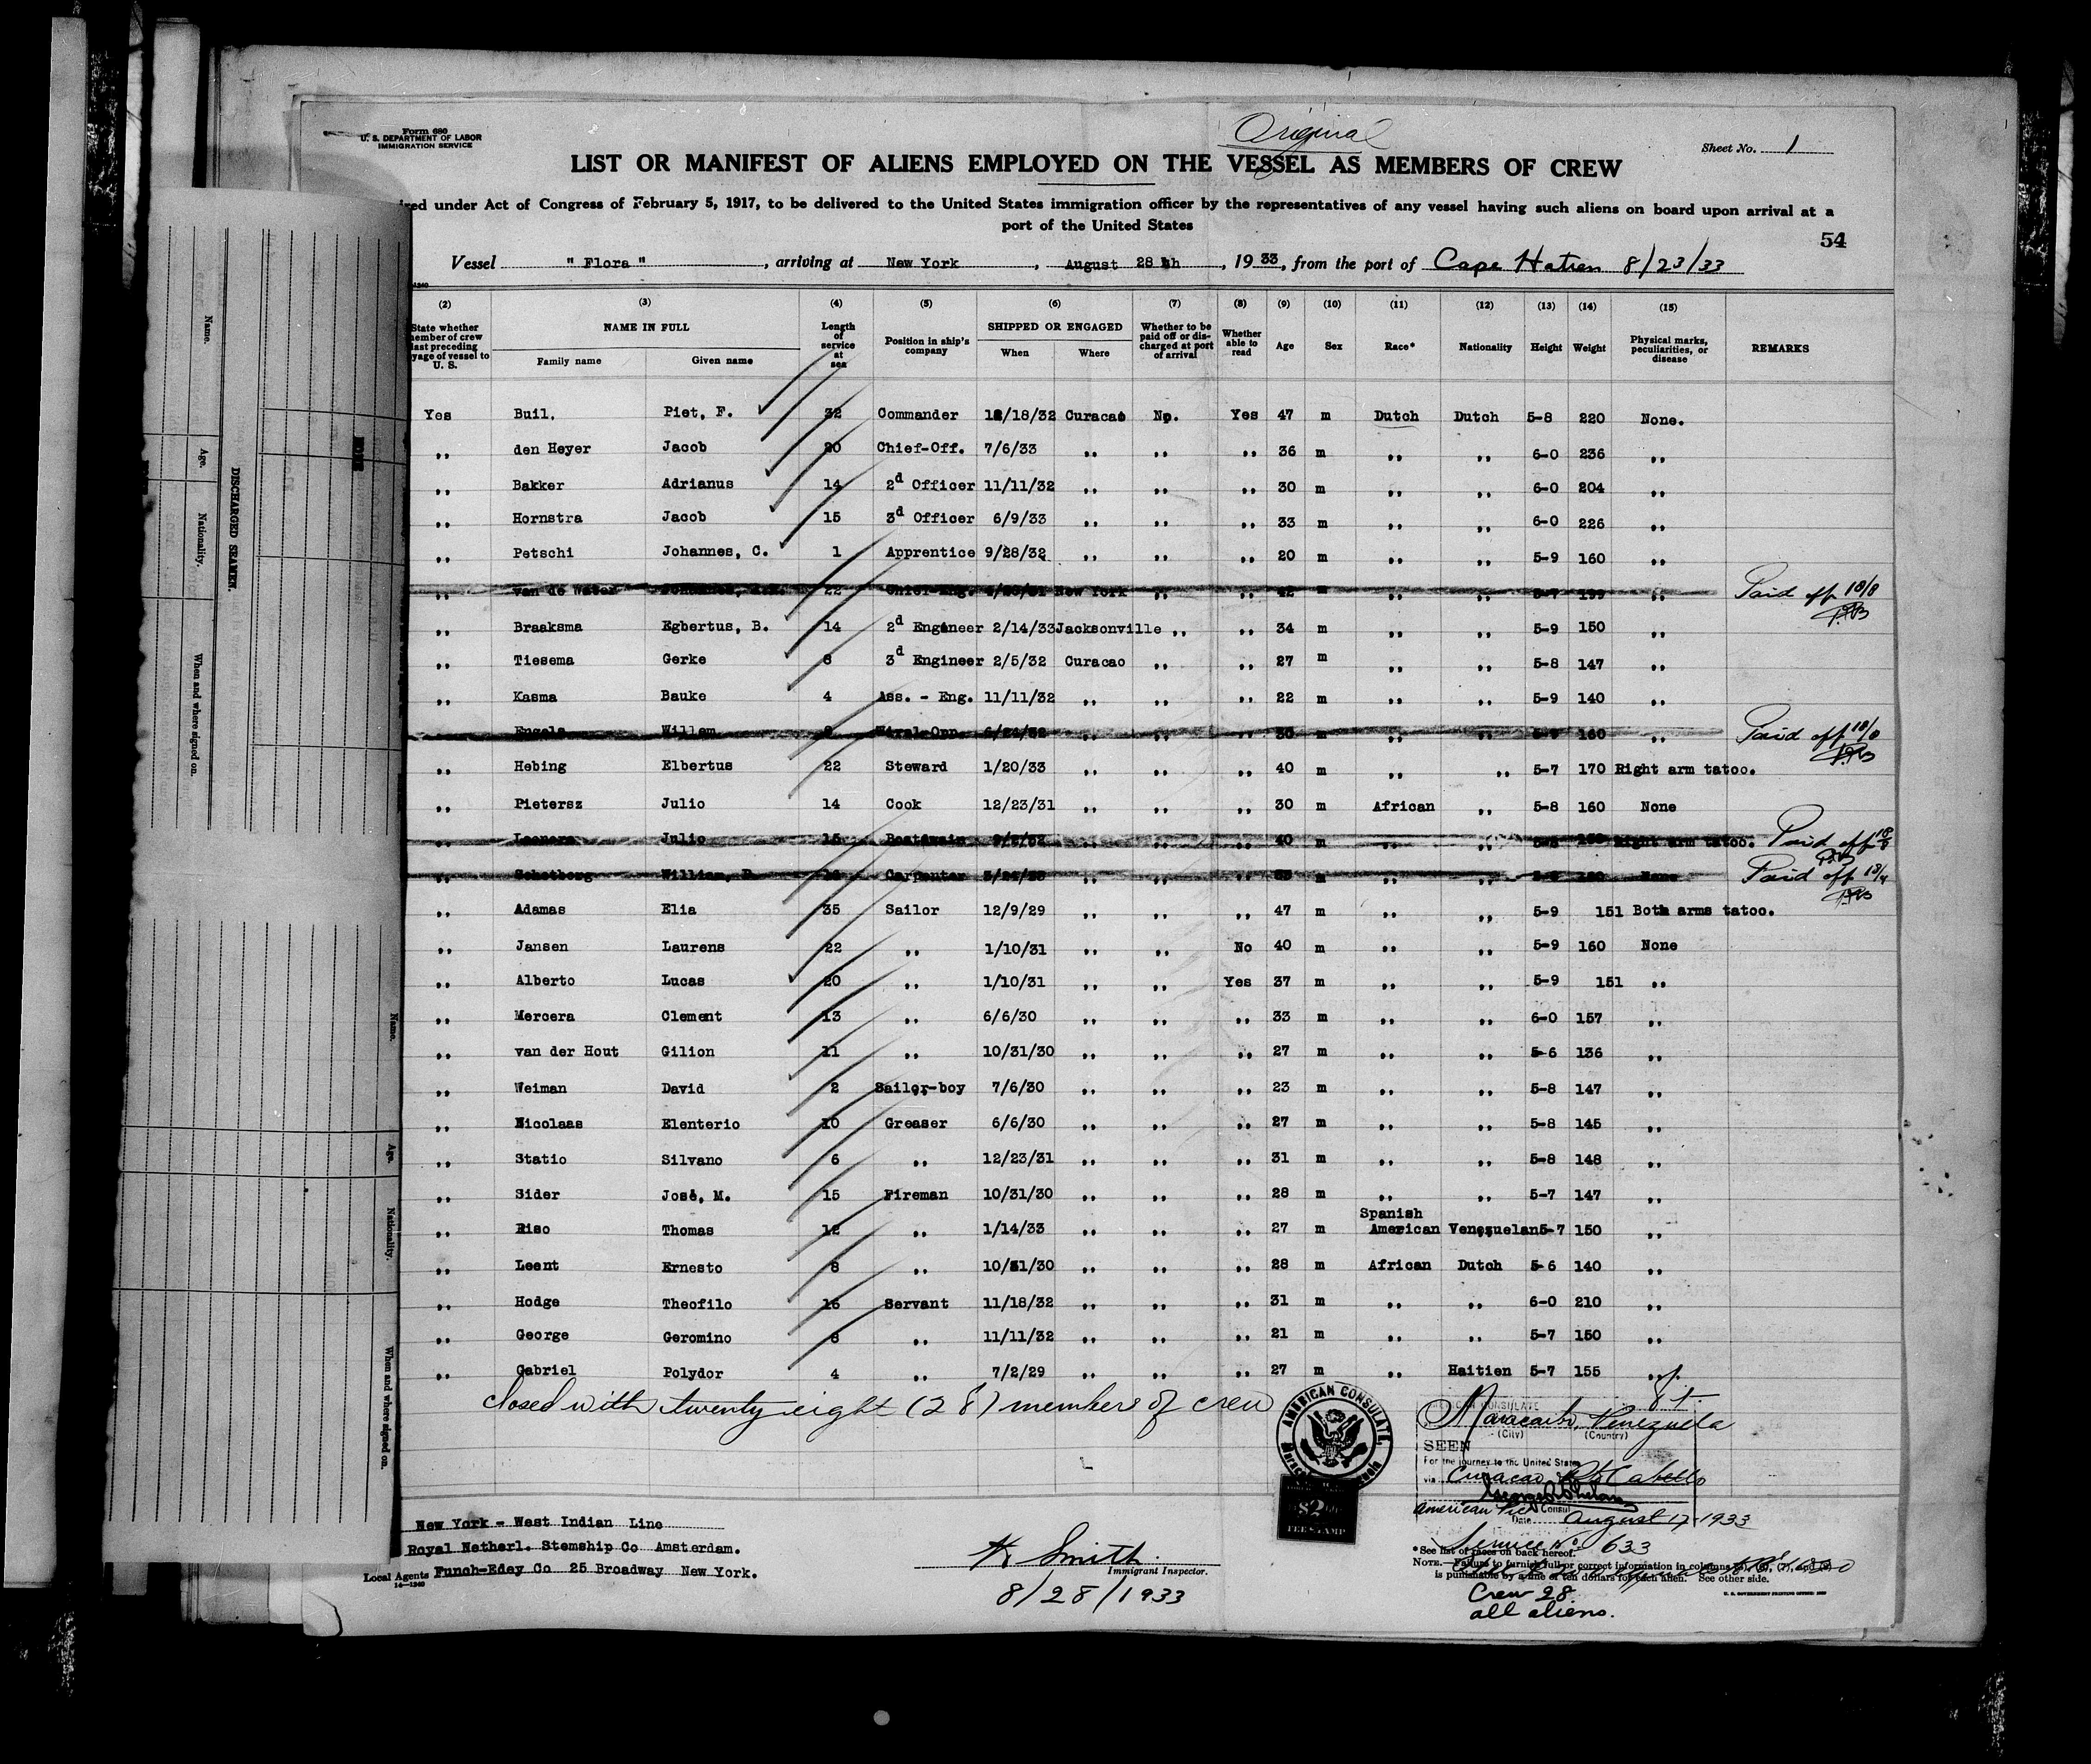 Form 680
U. S. DEPARTMENT OF LABOR
IMMIGRATION SERVICE
Original
Sheet No. 1
LIST OR MANIFEST OF ALIENS EMPLOYED ON THE VESSEL AS MEMBERS OF CREW
under Act of Congress of February 5, 1917, to be delivered to the United States immigration officer by the representatives of any vessel having such aliens on board upon arrival at a
port of the United States
54
Vessel " Flora ", arriving at New York, August 28 th, 1933, from the port of Cape Hatien 8/23/33
(2) (3) (4) (5) (6) (7) (8) (9) (10) (11) (12) (13) (14) (15)
State whether member of crew last preceding voyage of vessel to U. S. NAME IN FULL Family name Given name Length of service at sea Position in ship's company SHIPPED OR ENGAGED When Where Whether to be paid off or discharged at port of arrival Whether able to read Age Sex Race* Nationality Height Weight Physical marks, peculiarities, or disease REMARKS
Yes Buil, Piet, F. 32 Commander 12/18/32 Curacao No. Yes 47 m Dutch Dutch 5-8 220 None.
,, den Heyer Jacob 20 Chief-Off. 7/6/33 ,, ,, ,, 36 m ,, ,, 6-0 236 ,,
,, Bakker Adrianus 14 2d Officer 11/11/32 ,, ,, ,, 30 m ,, ,, 6-0 204 ,,
,, Hornstra Jacob 15 3d Officer 6/9/33 ,, ,, ,, 33 m ,, ,, 6-0 226 ,,
,, Petschi Johannes, C. 1 Apprentice 9/28/32 ,, ,, ,, 20 m ,, ,, 5-9 160 ,,
,, van de Water 22 Chief-Eng. New York ,, ,, 42 m ,, ,, 5-7 199 ,, Paid off 18/8
,, Braaksma Egbertus, B. 14 2d Engineer 2/14/33 Jacksonville ,, ,, 34 m ,, ,, 5-9 150 ,,
,, Tiesema Gerke 8 3d Engineer 2/5/32 Curacao ,, ,, 27 m ,, ,, 5-8 147 ,,
,, Kasma Bauke 4 Ass. - Eng. 11/11/32 ,, ,, ,, 22 m ,, ,, 5-9 140 ,,
,, Engels Willem 6/24/32 ,, ,, ,, 30 m ,, ,, 160 ,, Paid off 18/8
,, Hebing Elbertus 22 Steward 1/20/33 ,, ,, ,, 40 m ,, ,, 5-7 170 Right arm tatoo.
,, Pietersz Julio 14 Cook 12/23/31 ,, ,, ,, 30 m African ,, 5-8 160 None
,, Leonora Julio 15 Boatswain ,, ,, ,, 40 m ,, ,, Right arm tatoo. Paid off 18/8
,, Schotborg William, Carpenter ,, ,, ,, m ,, ,, None Paid off 18/8
,, Adamas Elia 35 Sailor 12/9/29 ,, ,, ,, 47 m ,, ,, 5-9 151 Both arms tatoo.
,, Jansen Laurens 22 ,, 1/10/31 ,, ,, No 40 m ,, ,, 5-9 160 None
,, Alberto Lucas 20 ,, 1/10/31 ,, ,, Yes 37 m ,, ,, 5-9 151 ,,
,, Mercera Clement 13 ,, 6/6/30 ,, ,, ,, 33 m ,, ,, 6-0 157 ,,
,, van der Hout Gilion 11 ,, 10/31/30 ,, ,, ,, 27 m ,, ,, 5-6 136 ,,
,, Weiman David 2 Sailor-boy 7/6/30 ,, ,, ,, 23 m ,, ,, 5-8 147 ,,
,, Nicolaas Elenterio 10 Greaser 6/6/30 ,, ,, ,, 27 m ,, ,, 5-8 145 ,,
,, Statio Silvano 6 ,, 12/23/31 ,, ,, ,, 31 m ,, ,, 5-8 148 ,,
,, Sider José, M. 15 Fireman 10/31/30 ,, ,, ,, 28 m ,, ,, 5-7 147 ,,
,, Riso Thomas 12 ,, 1/14/33 ,, ,, ,, 27 m Spanish American Venezuelan 5-7 150 ,,
,, Leent Ernesto 8 ,, 10/31/30 ,, ,, ,, 28 m African Dutch 5-6 140 ,,
,, Hodge Theofilo 16 Servant 11/18/32 ,, ,, ,, 31 m ,, ,, 6-0 210 ,,
,, George Geromino 8 ,, 11/11/32 ,, ,, ,, 21 m ,, ,, 5-7 150 ,,
,, Gabriel Polydor 4 ,, 7/2/29 ,, ,, ,, 27 m ,, Haitien 5-7 155 ,,
closed with twenty eight (28) members of crew
AMERICAN CONSULATE,
Maracaibo, Venezuela
(City) (Country)
SEEN
For the journey to the United States
via Curacao Pto Cabello
American Vice Consul
Date August 17, 1933
Service No. 633
$2
FEE STAMP
New York - West Indian Line
Royal Netherl. Stemship Co Amsterdam.
Local Agents Funch-Edey Co 25 Broadway New York.
14-1240
H Smith
Immigrant Inspector.
8/28/1933
*See list of races on back hereof.
NOTE.—Failure to furnish full or correct information in columns
is punishable by a fine of ten dollars for each alien. See other side.
Crew 28
all aliens.
DISCHARGED SEAMEN.
Name.
Age.
Nationality.
When and where signed on.
Name.
Age.
Nationality.
When and where signed on.